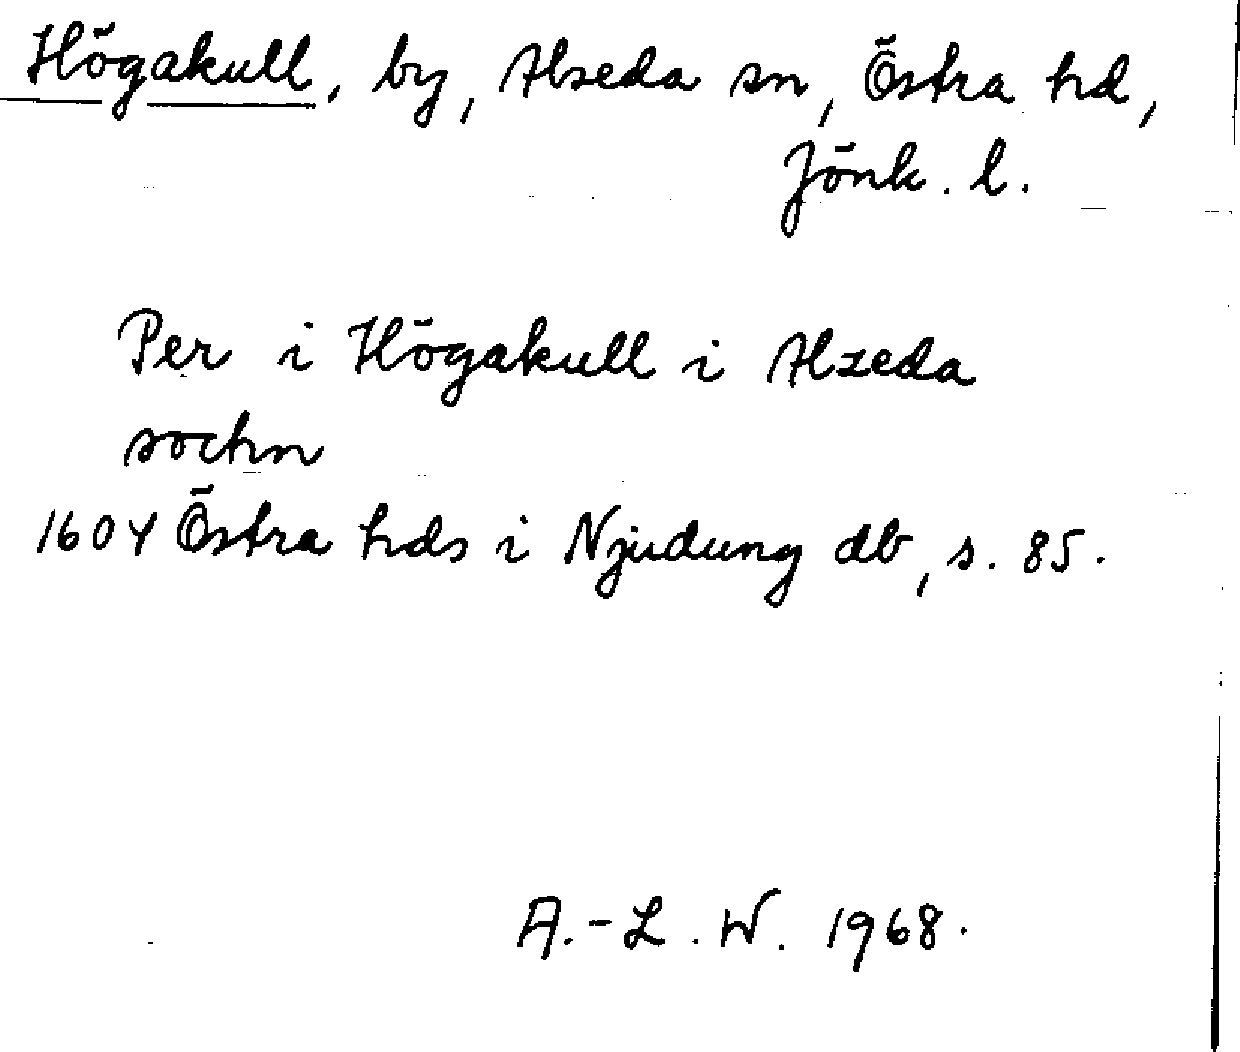 Högakull, by, Alseda sn, Östra hd,
Jönk. l.
Per i Högakull i Alzeda
sochn
1604 Östra hds i Njudung db, s. 85.
A.-L. W. 1968.